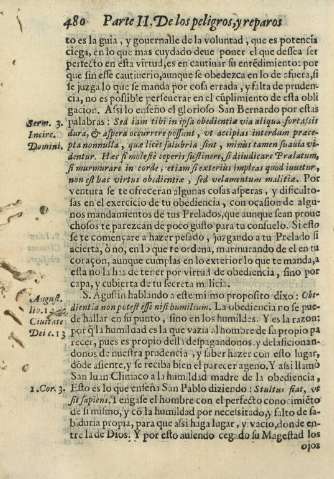 480 Parte II. De los peligros, y reparos
to es la guia, y gouernalle de la voluntad, que es potencia
ciega, en lo que mas cuydado deue poner el que dessea ser
perfecto en esta virtud, es en cautiuar su entẽdimiento: por
que sin esse cautiuerio, aunque se obedezca en lo de afuera, si
se juzga lo que se manda por cosa errada, y falta de pruden-
cia, no es possible perseuerar en el cũplimiento de esta obli
gacion. Assi lo enseño el glorioso San Bernardo por estas
Serm. 3. palabras: Sed iam tibi in ipsa obedientia via aliqua forassis
Incirc. dura, & aspera occurrere possunt, vt accipias interdum præce-
Domini. pta nonnulla, quæ licet salubria sint, minus tamen suauia vi-
dentur. Hæc si molestè ceperis sustinere, si diiudicare Prælatum,
si murmurare in corde; etiam si exterius impleas quod iuuetur,
non est hæc virtus obedientiæ, sed velamentum malitiæ. Por
ventura se te ofreceran algunas cosas asperas, y dificulto-
sas en el exercicio de tu obediencia, con ocasion de algu-
nos mandamientos de tus Prelados, que aunque sean proue
chosos te parezcan de poco gusto para tu consuelo. Si esto
se te començare a hazer pesado, y juzgando a tu Prelado si
acierta, ò no, en lo que te ordena, murmurando de el en tu
coraçon, aunque cumplas en lo exterior lo que te manda, a
esta no la has de tener por virtud de obediencia, sino por
capa, y cubierta de tu secreta malicia.
S. Agustin hablando a este mismo proposito dixo: Obe-
August. dientia non potest esse nisi humilium. La obediencia no se pue-
lib. 14. de hallar en su punto, sino en los humildes. Y es la razon:
Ciuitate por q̃ la humildad es la que vazia al hombre de su propio pa
Dei c. 13 recer, pues es propio della despagandonos, y delaficionan-
donos de nuestra prudencia, y saber hazer con esto lugar,
donde assiente, y se reciba bien el parecer ageno. Y assi llamò
San Iuan Climaco a la humildad madre de la obediencia,
1. Cor. 3. Esto es lo que enseña San Pablo diziendo: Stultus fiat, vt
sit sapiens. Tengase el hombre con el perfecto conocimiẽto
de si mismo, y cõ la humildad por necesitado, y falto de sa-
biduria propia, para que assi haga lugar, y vacio, donde en-
tre la de Dios. Y por esto auiendo cegado su Magestad los
ojos